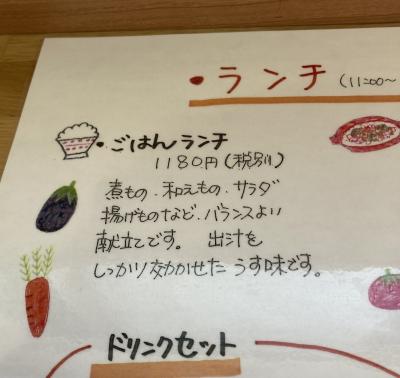 ・ランチ (11:00〜
・ごはんランチ
1180円(税別)
煮もの．和えもの．サラダ
揚げものなど．バランスよい
献立です。 出汁を
しっかり効かせた うす味です。
ドリンクセット